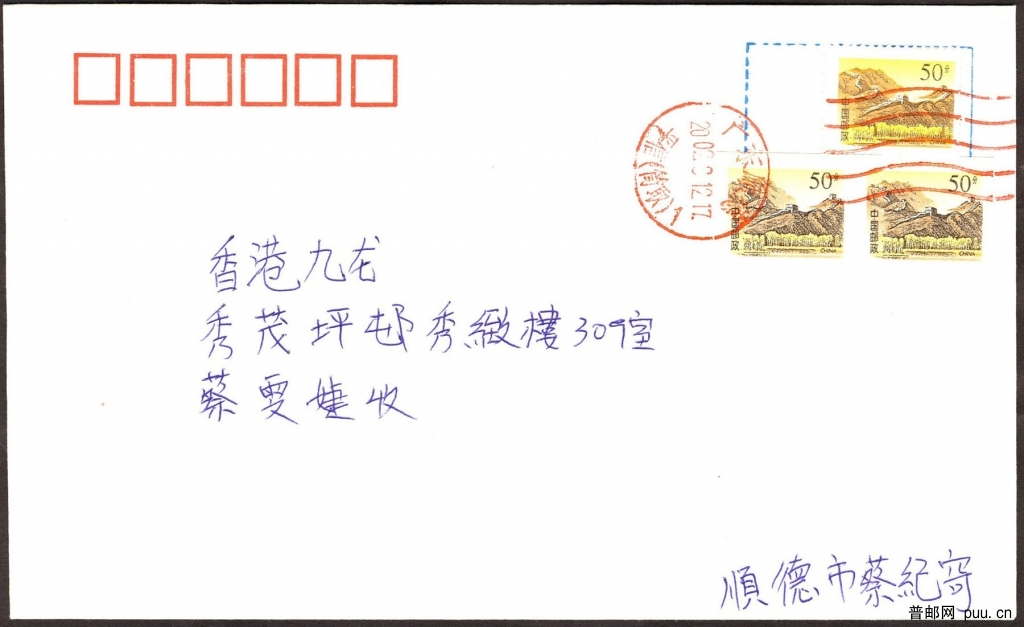 50分
中国邮政
CHINA
50分
中国邮政
CHINA
50分
中国邮政
CHINA
广东顺德
2002.9.12.17
香港九龙
秀茂坪邨秀緻樓309室
蔡雯婕收
順德市蔡紀寄
普邮网 puu.cn